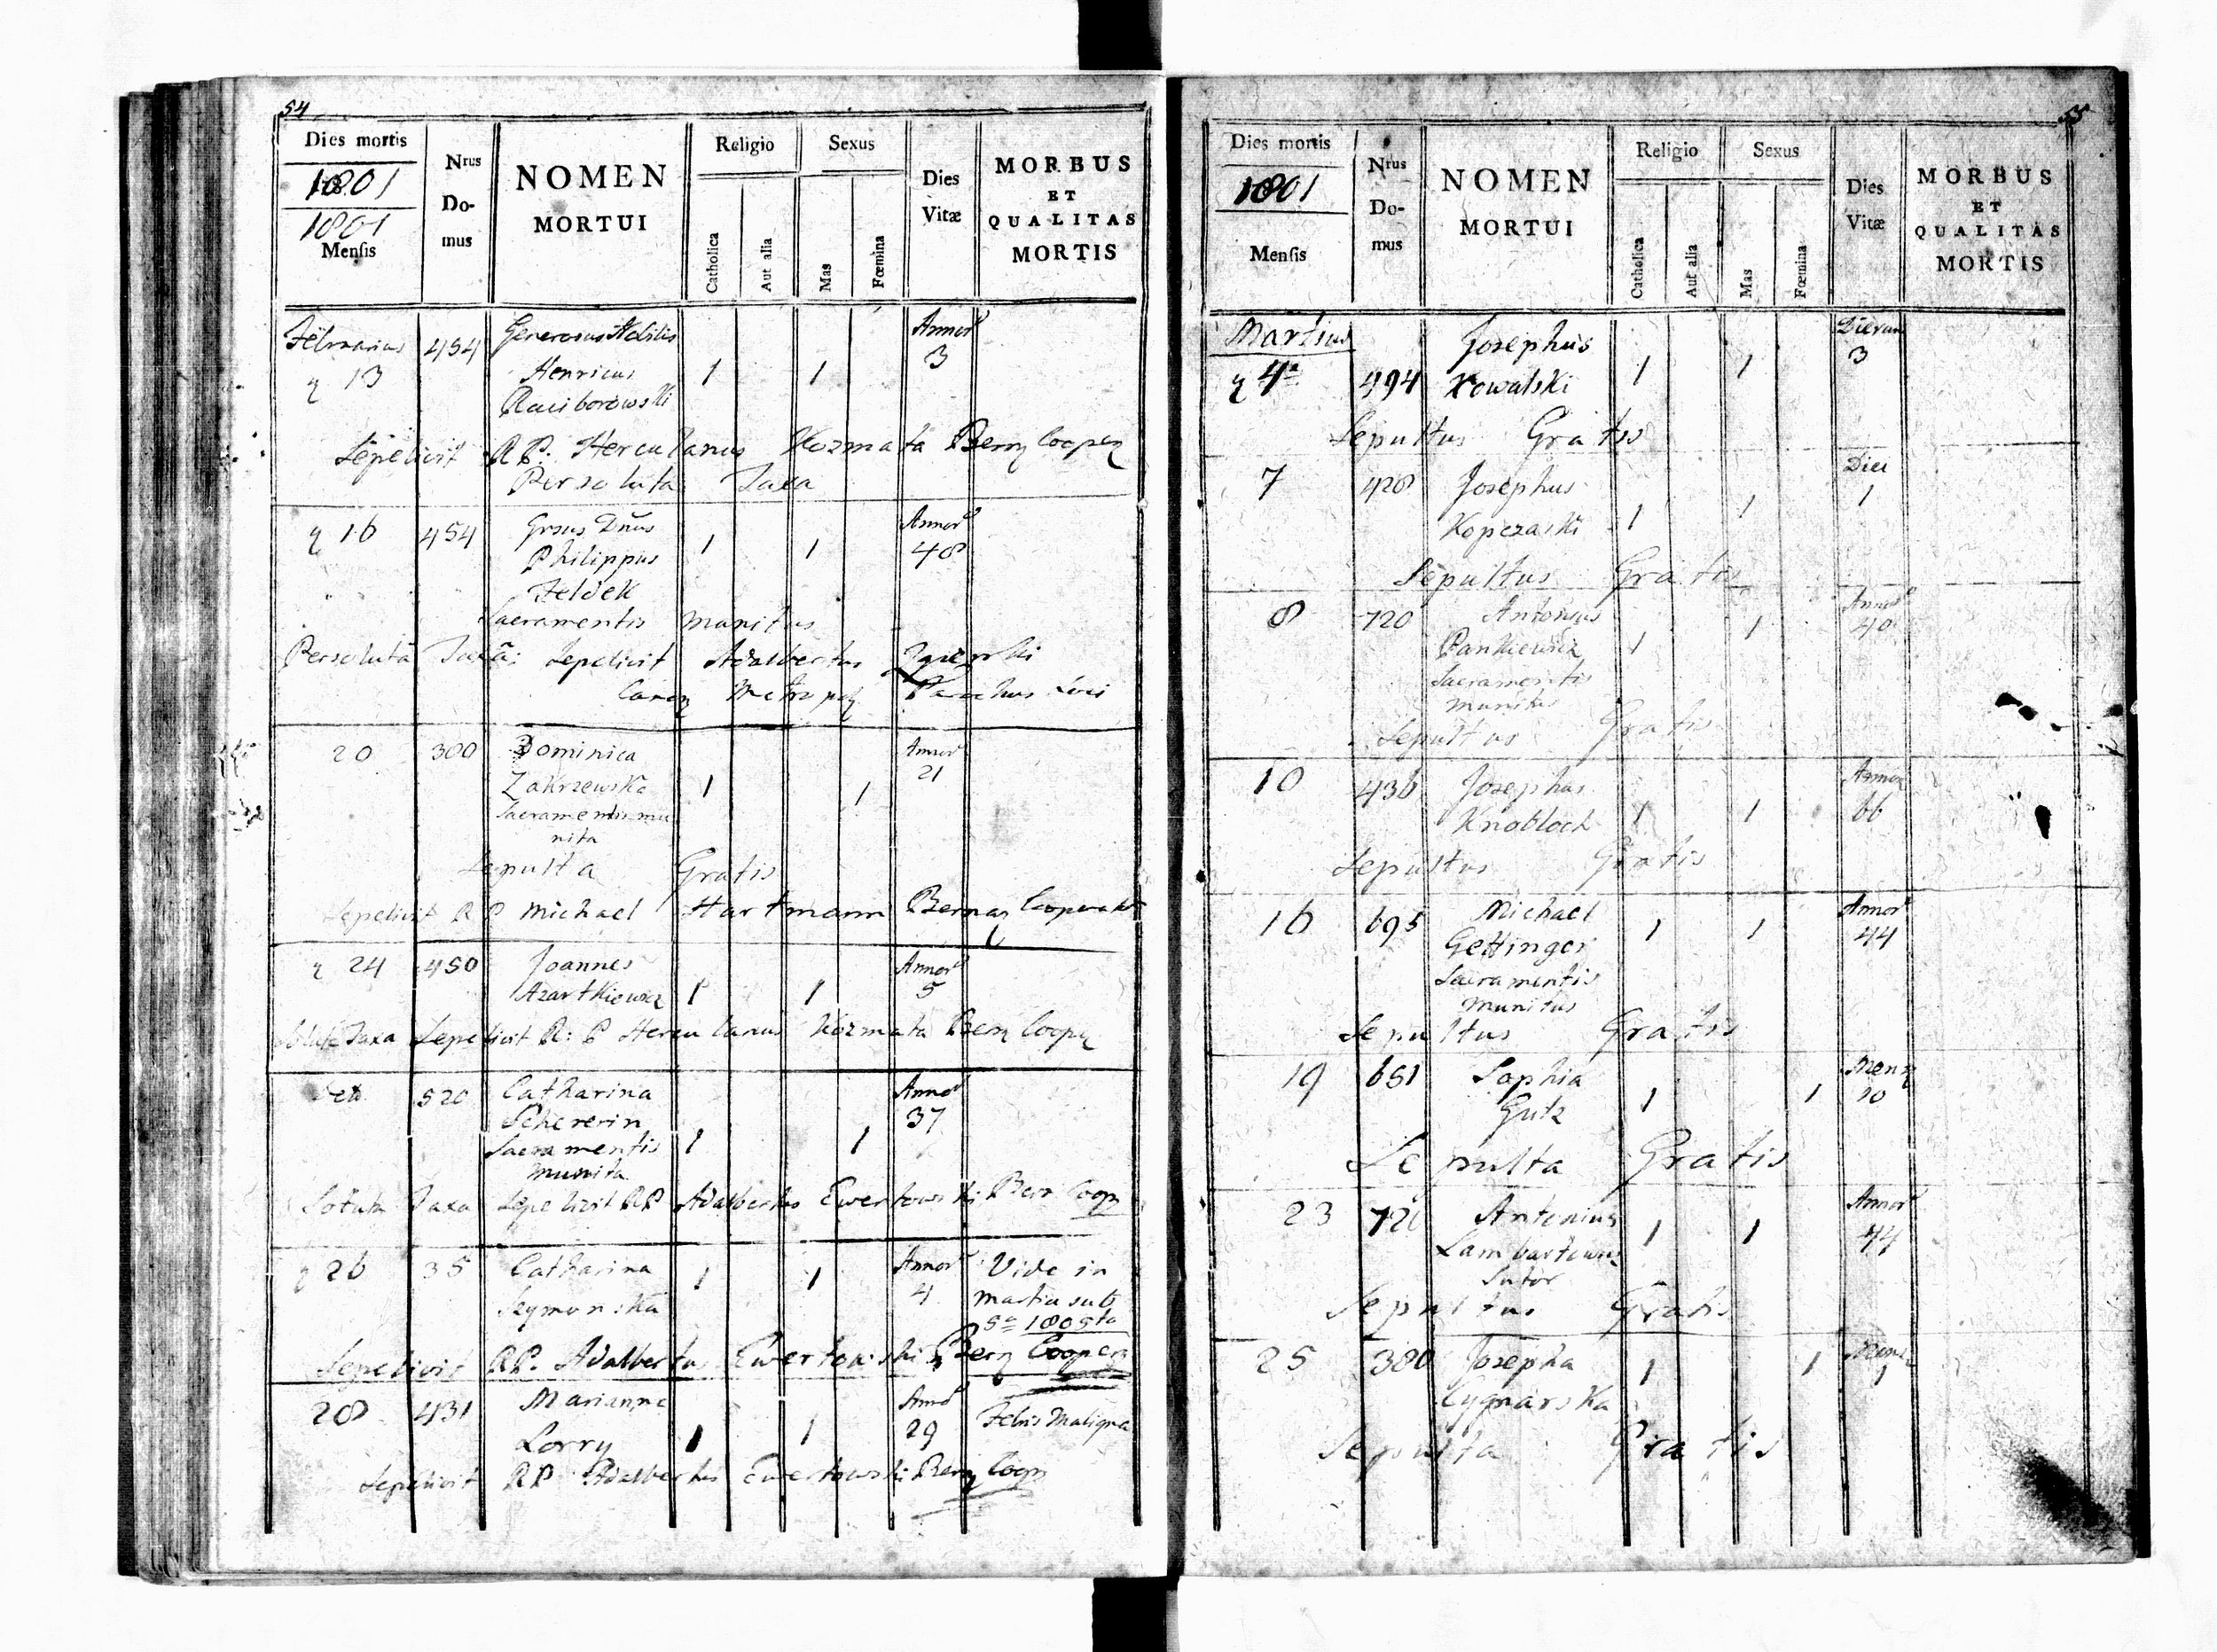 54
Dies mortis
1801
1801
Mensis
Nrus
Do-
mus
NOMEN
MORTUI
Religio
Catholica
Aut alia
Sexus
Mas
Fœmina
Dies
Vitæ
MORBUS
ET
QUALITAS
MORTIS
Februarius 454 Generosus Nobilis Annor
13 Henricus 1 1 3
Raciborowski
Sepelivit RP. Herculanus Kozmata Bern Cooper
Persoluta Taxa
16 454 Grsus Dnus Annor
Philippus 1 1 48
Feldek
Sacramentis munitus
Persoluta Taxa: Sepelivit Adalbertus
Canon Metropol Parochus Loci
20 300 Dominica Annor
Zakrzewska 1 1 21
Sacramentis mu
nita
Sepulta Gratis
Sepelivit RP Michael Hartmann Bernar Cooperator
24 450 Joannes Annor
Azartkiewicz 1 1 5
Taxa Sepelivit R: P Herculanus Kozmata Bern Coop
520 Catharina Annor
Schererin 37
Sacramentis 1 1
munita
Soluta Taxa Sepelivit RP Adalbertus Ewertowski Bern Coop
26 35 Catharina 1 1 Annor Vide in
Szymonska 4 martio sub
1805ta
Sepelivit RP. Adalbertus Ewertowski Bern Cooper
28 431 Marianna Annor Febris Maligna
Lorry 1 1 29
Sepelivit RP Adalbertus Ewertowski Bern Coop
55
Dies mortis
1801
Mensis
Nrus
Do-
mus
NOMEN
MORTUI
Religio
Catholica
Aut alia
Sexus
Mas
Fœmina
Dies
Vitæ
MORBUS
ET
QUALITAS
MORTIS
Martius Josephus Dierum
4a 494 Kowalski 1 1 3
Sepultus Gratis
7 428 Josephus Diei
Kopczaski 1 1 1
Sepultus Gratis
8 720 Antonius Annor
Pankiewicz 1 1 40
Sacramentis
munitus
Sepultus Gratis
10 436 Josephus Annor
Knobloch 1 1 66
Sepultus Gratis
16 695 Michael 1 1 Annor
Gettinger 44
Sacramentis
munitus
Sepultus Gratis
19 651 Sophia Mens
Gutz 1 1 10
Sepulta Gratis
23 720 Antonius 1 1 Annor
44
Sutor
Sepultus Gratis
25 380 Josepha 1 1
Cygnarska
Sepulta Gratis